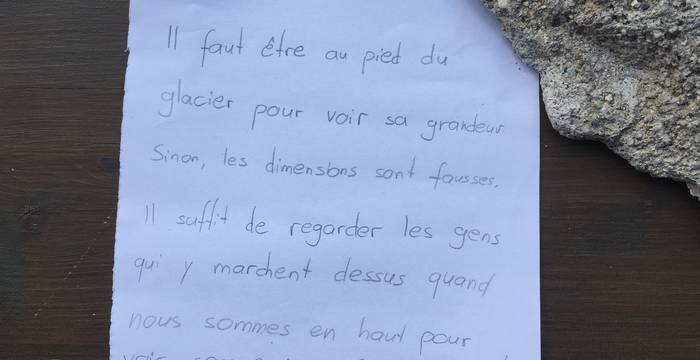 Il faut être au pied du
glacier pour voir sa grandeur
Sinon, les dimensions sont fausses.
Il suffit de regarder les gens
qui y marchent dessus quand
nous sommes en haut pour
voir